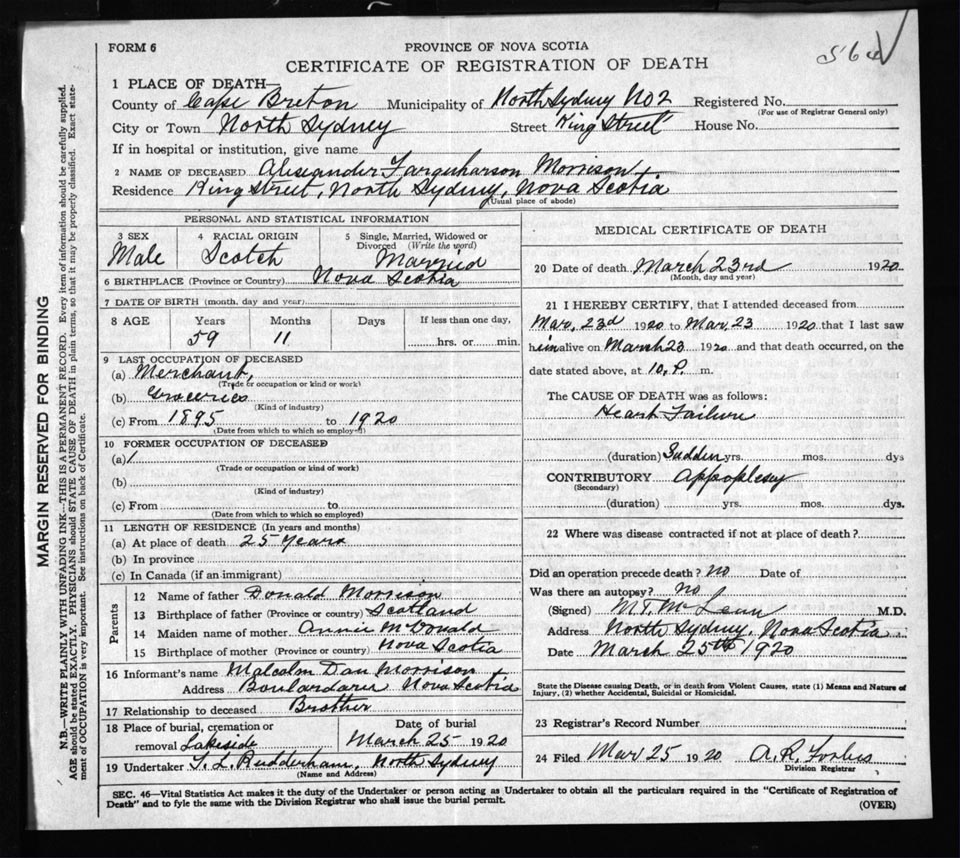 FORM 6
PROVINCE OF NOVA SCOTIA
CERTIFICATE OF REGISTRATION OF DEATH
564
1 PLACE OF DEATH
County of Cape Breton Municipality of North Sydney No 2 Registered No.
(For use of Registrar General only)
City or Town North Sydney Street King Street House No.
If in hospital or institution, give name
2 NAME OF DECEASED Alexander Farquharson Morrison
Residence King Street, North Sydney, Nova Scotia
(Usual place of abode)
PERSONAL AND STATISTICAL INFORMATION
3 SEX
Male
4 RACIAL ORIGIN
Scotch
5 Single, Married, Widowed or
Divorced (Write the word)
Married
6 BIRTHPLACE (Province or Country) Nova Scotia
7 DATE OF BIRTH (month, day and year)
8 AGE Years Months Days If less than one day,
59 11 hrs. or min.
9 LAST OCCUPATION OF DECEASED
(a) Merchant,
(Trade or occupation or kind or work)
(b) Groceries
(Kind of industry)
(c) From 1895 to 1920
(Date from which to which so employed)
10 FORMER OCCUPATION OF DECEASED
(a) /
(Trade or occupation or kind of work)
(b)
(Kind of industry)
(c) From to
(Date from which to which so employed)
11 LENGTH OF RESIDENCE (In years and months)
(a) At place of death 25 Years
(b) In province
(c) In Canada (if an immigrant)
Parents
12 Name of father Donald Morrison
13 Birthplace of father (Province or country) Scotland
14 Maiden name of mother Annie McDonald
15 Birthplace of mother (Province or country) Nova Scotia
16 Informant's name Malcolm Dan Morrison
Address Boulardarie Nova Scotia
17 Relationship to deceased Brother
18 Place of burial, cremation or
removal Lakeside
Date of burial
March 25 1920
19 Undertaker T. L. Rudderham, North Sydney
(Name and Address)
MEDICAL CERTIFICATE OF DEATH
20 Date of death March 23rd 1920
(Month, day and year)
21 I HEREBY CERTIFY, that I attended deceased from
Mar, 23d 1920 to Mar, 23 1920 that I last saw
him alive on March 23 1920 and that death occurred, on the
date stated above, at 10, P. m.
The CAUSE OF DEATH was as follows:
Heart Failure
(duration) Sudden yrs. mos. dys
CONTRIBUTORY Appoplexy
(Secondary)
(duration) yrs. mos. dys.
22 Where was disease contracted if not at place of death?
Did an operation precede death? No Date of
Was there an autopsy? No
(Signed) M.T. McLean M.D.
Address North Sydney, Nova Scotia
Date March 25th 1920
State the Disease causing Death, or in death from Violent Causes, state (1) Means and Nature of
Injury, (2) whether Accidental, Suicidal or Homicidal.
23 Registrar's Record Number
24 Filed Mar 25 1920 A. R. Forbes
Division Registrar
SEC. 46—Vital Statistics Act makes it the duty of the Undertaker or person acting as Undertaker to obtain all the particulars required in the "Certificate of Registration of
Death" and to fyle the same with the Division Registrar who shall issue the burial permit.
(OVER)
MARGIN RESERVED FOR BINDING
N.B.—WRITE PLAINLY WITH UNFADING INK—THIS IS A PERMANENT RECORD. Every item of information should be carefully supplied.
AGE should be stated EXACTLY. PHYSICIANS should STATE CAUSE OF DEATH in plain terms, so that it may be properly classified. Exact state-
ment of OCCUPATION is very important. See instructions on back of Certificate.